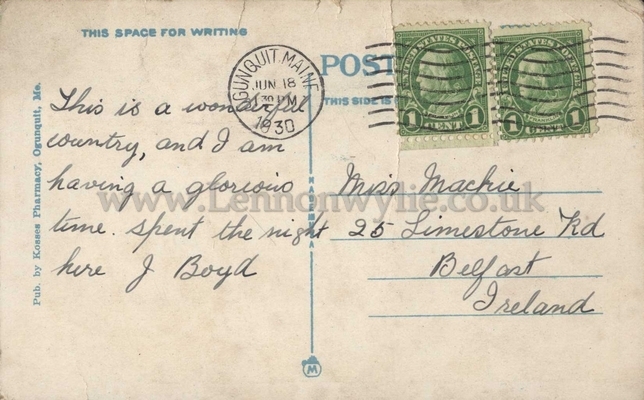 THIS SPACE FOR WRITING
OGUNQUIT, MAINE
JUN 18
1930
POST
THIS SIDE IS
UNITED STATES POSTAGE
1 CENT 1
UNITED STATES POSTAGE
1 CENT 1
This is a wonderful
country, and I am
having a glorious
time. spent the night
here J Boyd
Miss Mackie
25 Limestone Rd
Belfast
Ireland
Pub. by Kosses Pharmacy, Ogunquit, Me.
M
www.Lennonwylie.co.uk